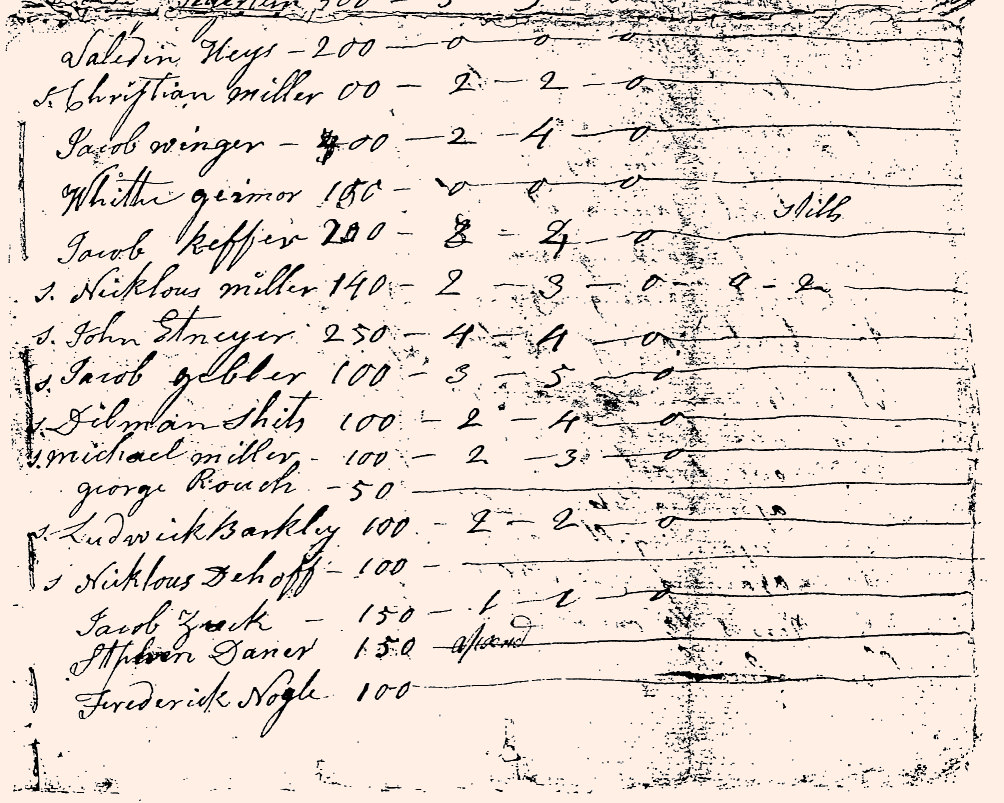 Saledin Heys - 200 - 0 0 0
s. Christian miller 00 - 2 - 2 - 0
Jacob winger - 400 - 2 - 4 - 0
germor 150 - 0 0 0
still
Jacob keffer 200 - 3 - 4 - 0
s. Nicklous miller 140 - 2 - 3 - 0 - 0 - 2
s. John Etneyer 250 - 4 - 4 - 0
s. Jacob gebler 100 - 3 - 5 - 0
s. Dilman Shits 100 - 2 - 4 - 0
s. michael miller - 100 - 2 - 3 - 0
george Rouch - 50
s. Ludwick Barkley 100 - 2 - 2 - 0
s Nicklous Dehoff - 100 -
Jacob Zuck - 150 - 1 - 1 - 0
Stphen Daner 150
Frederick Nogle 100